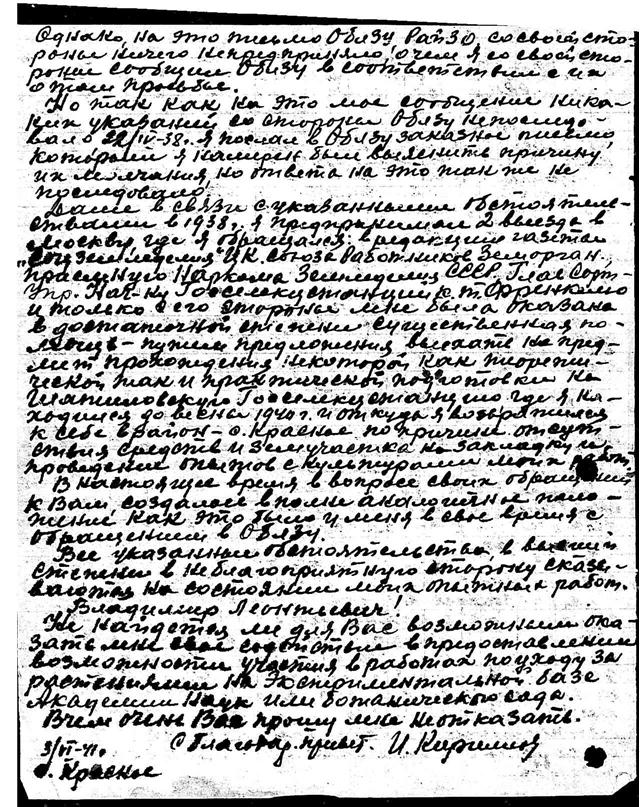 Однако, на это письмо Облзу Райзо со своей сто-
роны ничего не предприняло, о чем я со своей сто-
роны сообщил Облзу в соответствии с их
о том просьбе.
Но так как на это мое сообщение ника-
ких указаний со стороны Облзу не последо-
вало 22/IV-38 г. я послал в Облзу заказное письмо,
которым я намерен был выяснить причину
их молчания но ответа на это так же не
последовало.
Далее в связи с указанными обстоятель-
ствами в 1938 г. я предпринимал 2 выезда в
Москву, где я обращался: в редакцию газеты
земледелия ЦК. Союза Работников Земорган,
Наркома Земледелия СССР, Глав Сорт-
Упр. Нач-ку Госселекстанции т. Френкелю
и только с его стороны мне была оказана
в достаточной степени существенная по-
мощь - путем предложения выехать на пред-
мет прохождения некоторой как теорети-
ческой так и практической подготовки на
Шатиловскую Госселекстанцию где я на-
ходился до весны 1940 г. и откуда я возвратился
к себе в район - с. Красное по причине отсут-
ствия средств и земучастка на закладку и
проведение опытов с культурами моих работ.
В настоящее время в вопросе своих обращений
к Вам, создалось вполне аналогичное поло-
жение как это было у меня в свое время с
обращением в Облзу.
Все указанные обстоятельства, в высшей
степени в неблагоприятную сторону сказы-
ваются на состоянии моих опытных работ.
Владимир Леонтьевич!
Не найдется ли для Вас возможным ока-
зать мне свое содействие в предоставлении
возможности участия в работах по уходу за
растениями на Экспериментальной базе
Академии Наук или ботанического сада.
В чем очень Вас прошу мне не отказать.
3/VI-41 г. С благодар. привет. И. Кирилин
с. Красное